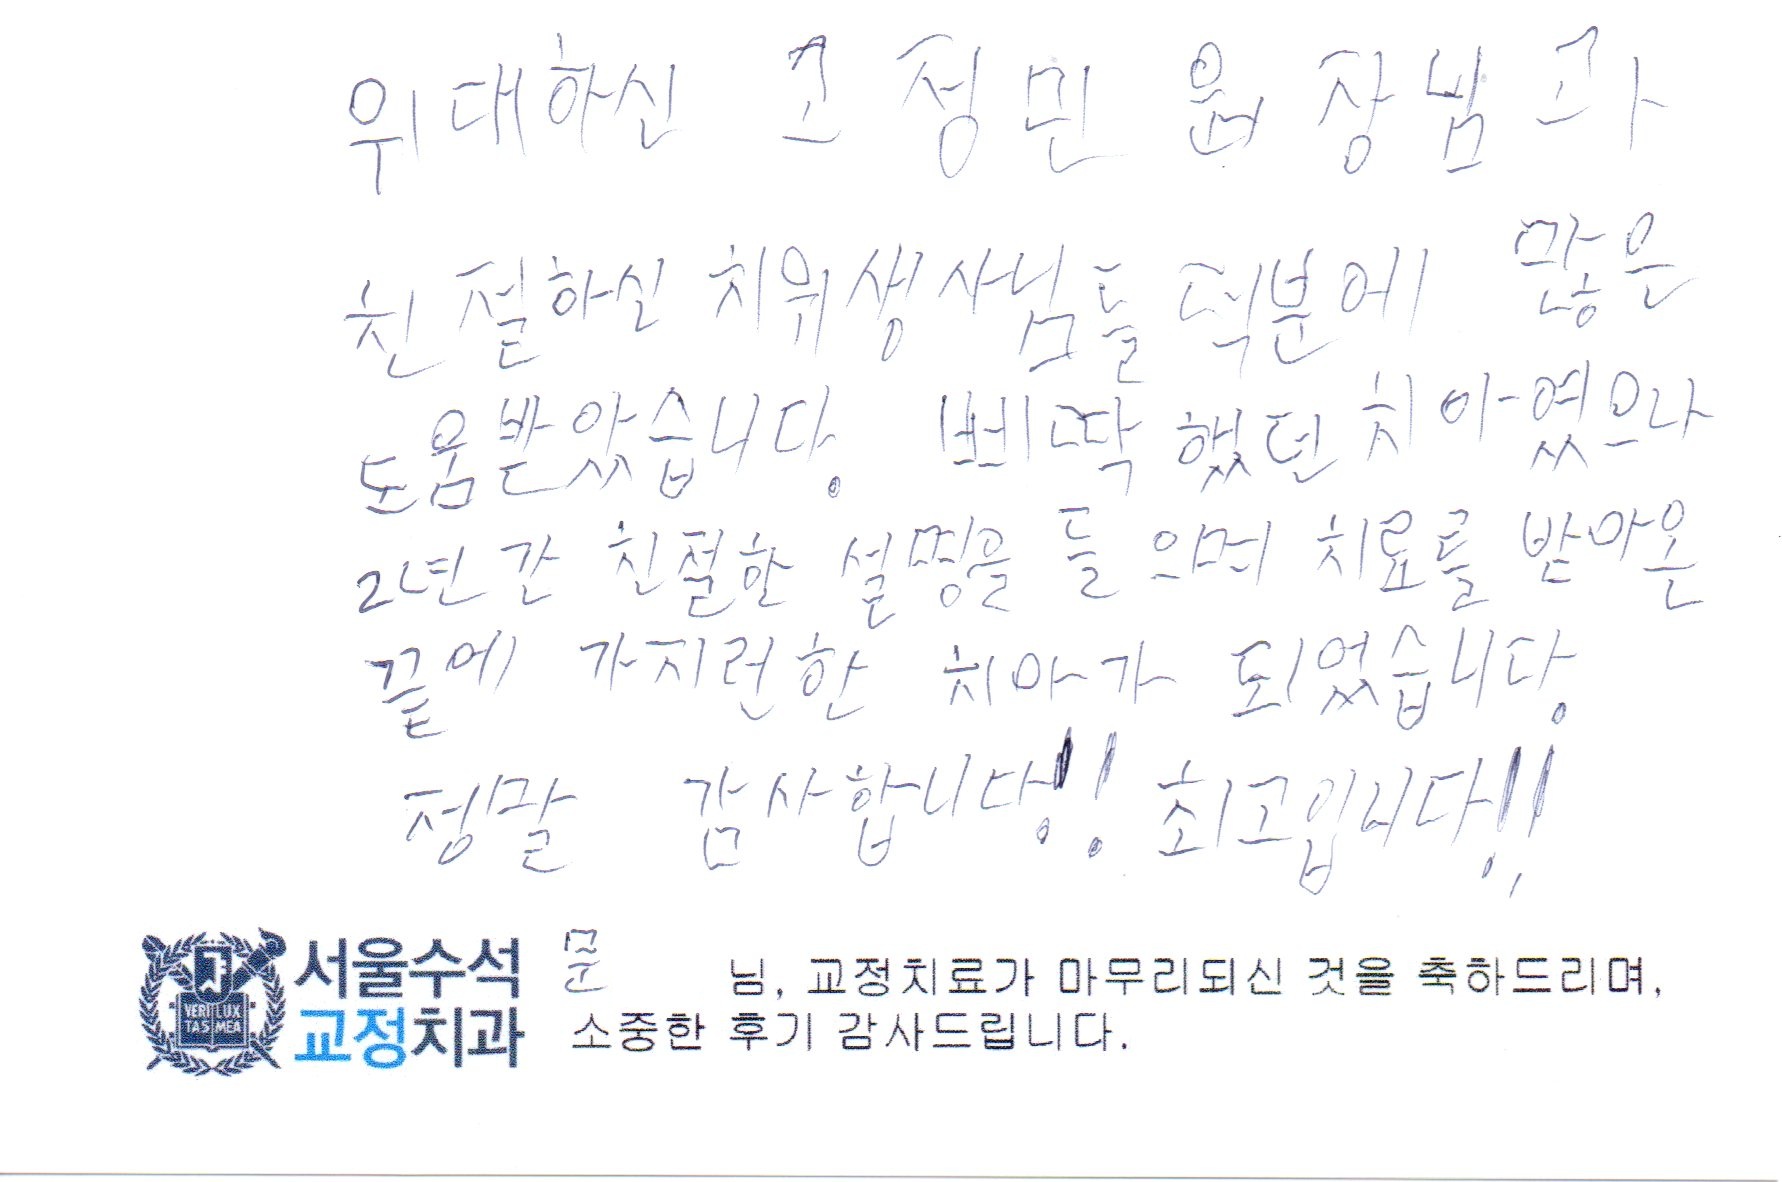 위대하신 조정민 원장님과
친절하신 치위생사님들 덕분에 많은
도움받았습니다. 삐딱했던 치아였으나
2년간 친절한 설명을 들으며 치료를 받아온
끝에 가지런한 치아가 되었습니다.
정말 감사합니다!! 최고입니다!!
서울수석
교정치과
VERI LUX
TAS MEA
문 님, 교정치료가 마무리되신 것을 축하드리며,
소중한 후기 감사드립니다.